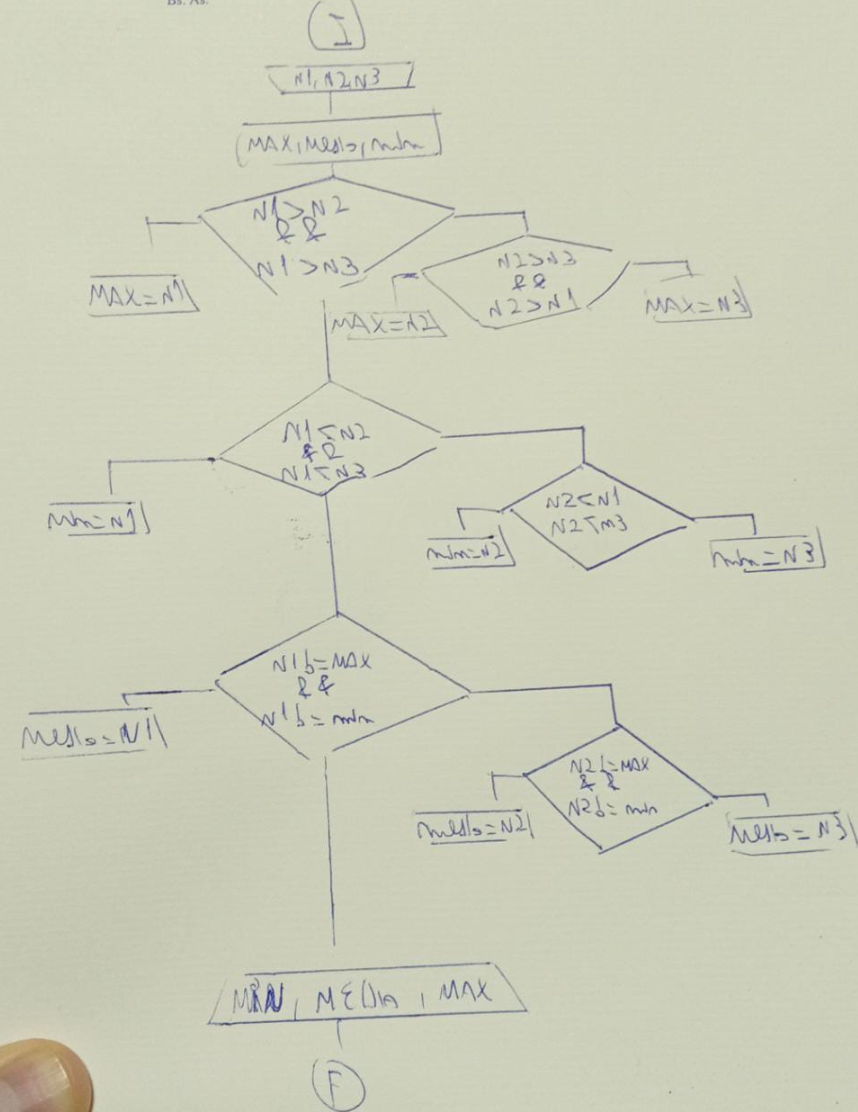 Bs. As.
I
N1, N2, N3
MAX, media, min
N1>N2
&&
N1>N3
MAX=N1
N2>N3
&&
N2>N1
MAX=N2
MAX=N3
N1<N2
&&
N1<N3
min=N1
N2<N1
N2<m3
min=N2
min=N3
N1 b=MAX
&&
N1 b=min
media=N1
N2 b=MAX
&&
N2 b=min
media=N2
media=N3
MIN, MEDIA, MAX
F